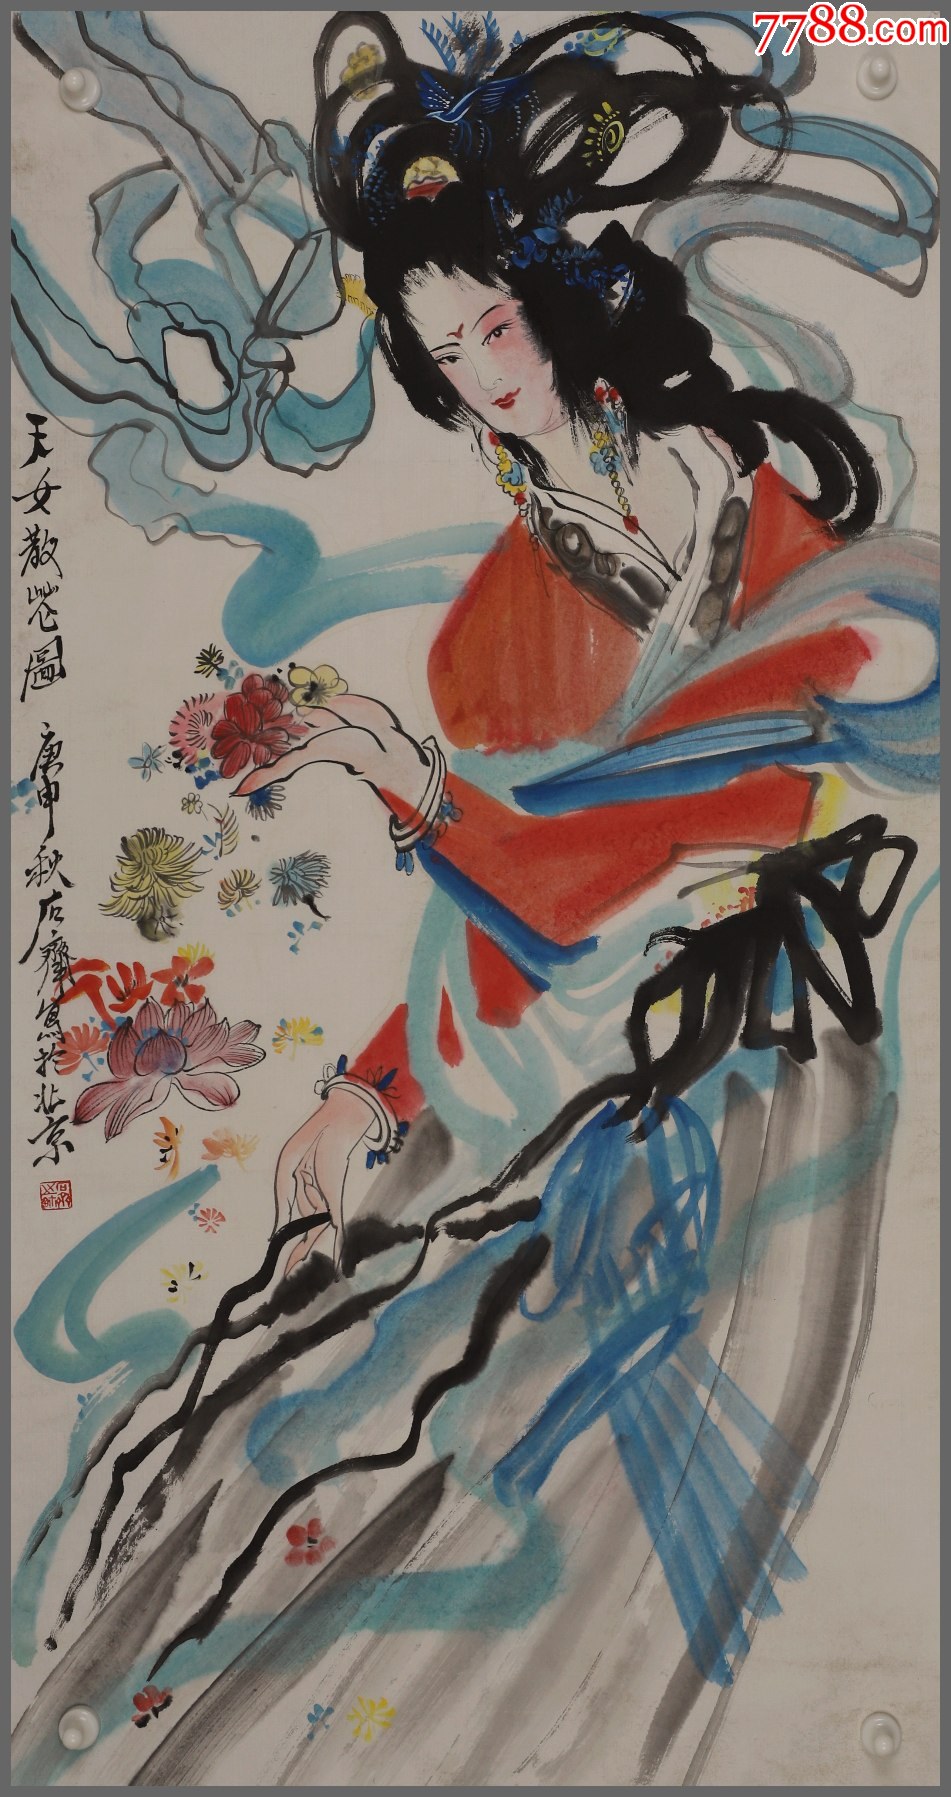 7788.com
天女散花圖 庚申秋石齊寫於北京